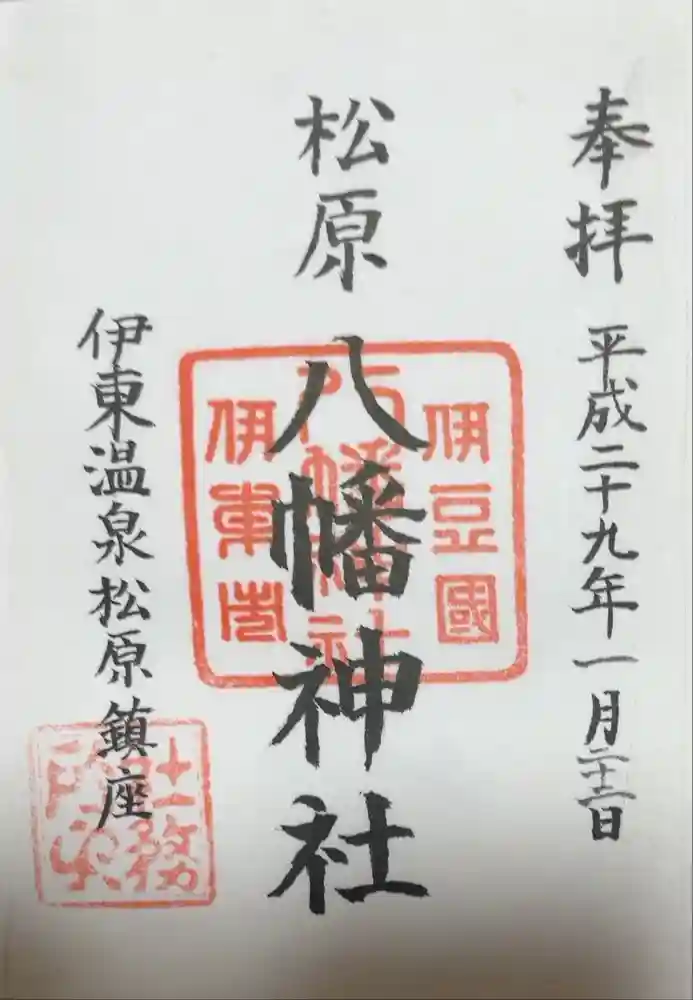 奉拝 平成二十九年一月二十二日
松原八幡神社
伊豆國
八幡神社
伊東市
伊東温泉松原鎮座
社務